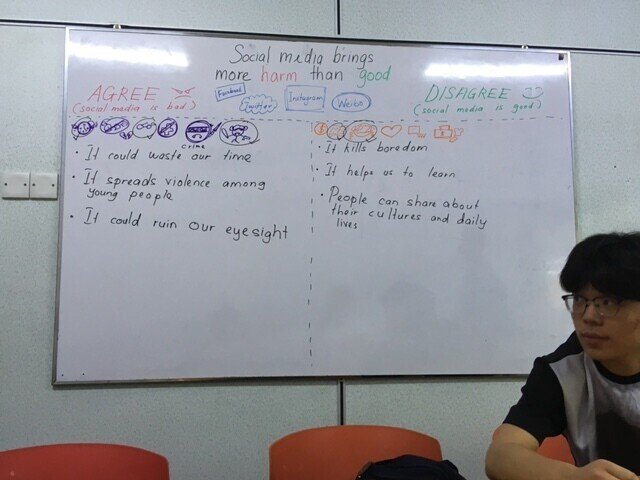 Social media brings
more harm than good
AGREE
(social media is bad)
Facebook
Twitter
Instagram
Weibo
DISAGREE
(social media is good)
crime
• It could waste our time
• It spreads violence among
young people
• It could ruin our eyesight
• It kills boredom
• It helps us to learn
• People can share about
their cultures and daily
lives